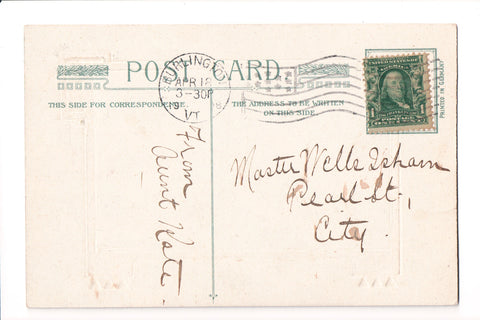 POST CARD
THIS SIDE FOR CORRESPONDENCE.
THE ADDRESS TO BE WRITTEN
ON THIS SIDE.
BURLINGTON
APR 18
3-30P
VT
PRINTED IN GERMANY
1 1
From
Aunt Kate.
Master Wells Isham
Pearl St.,
City.